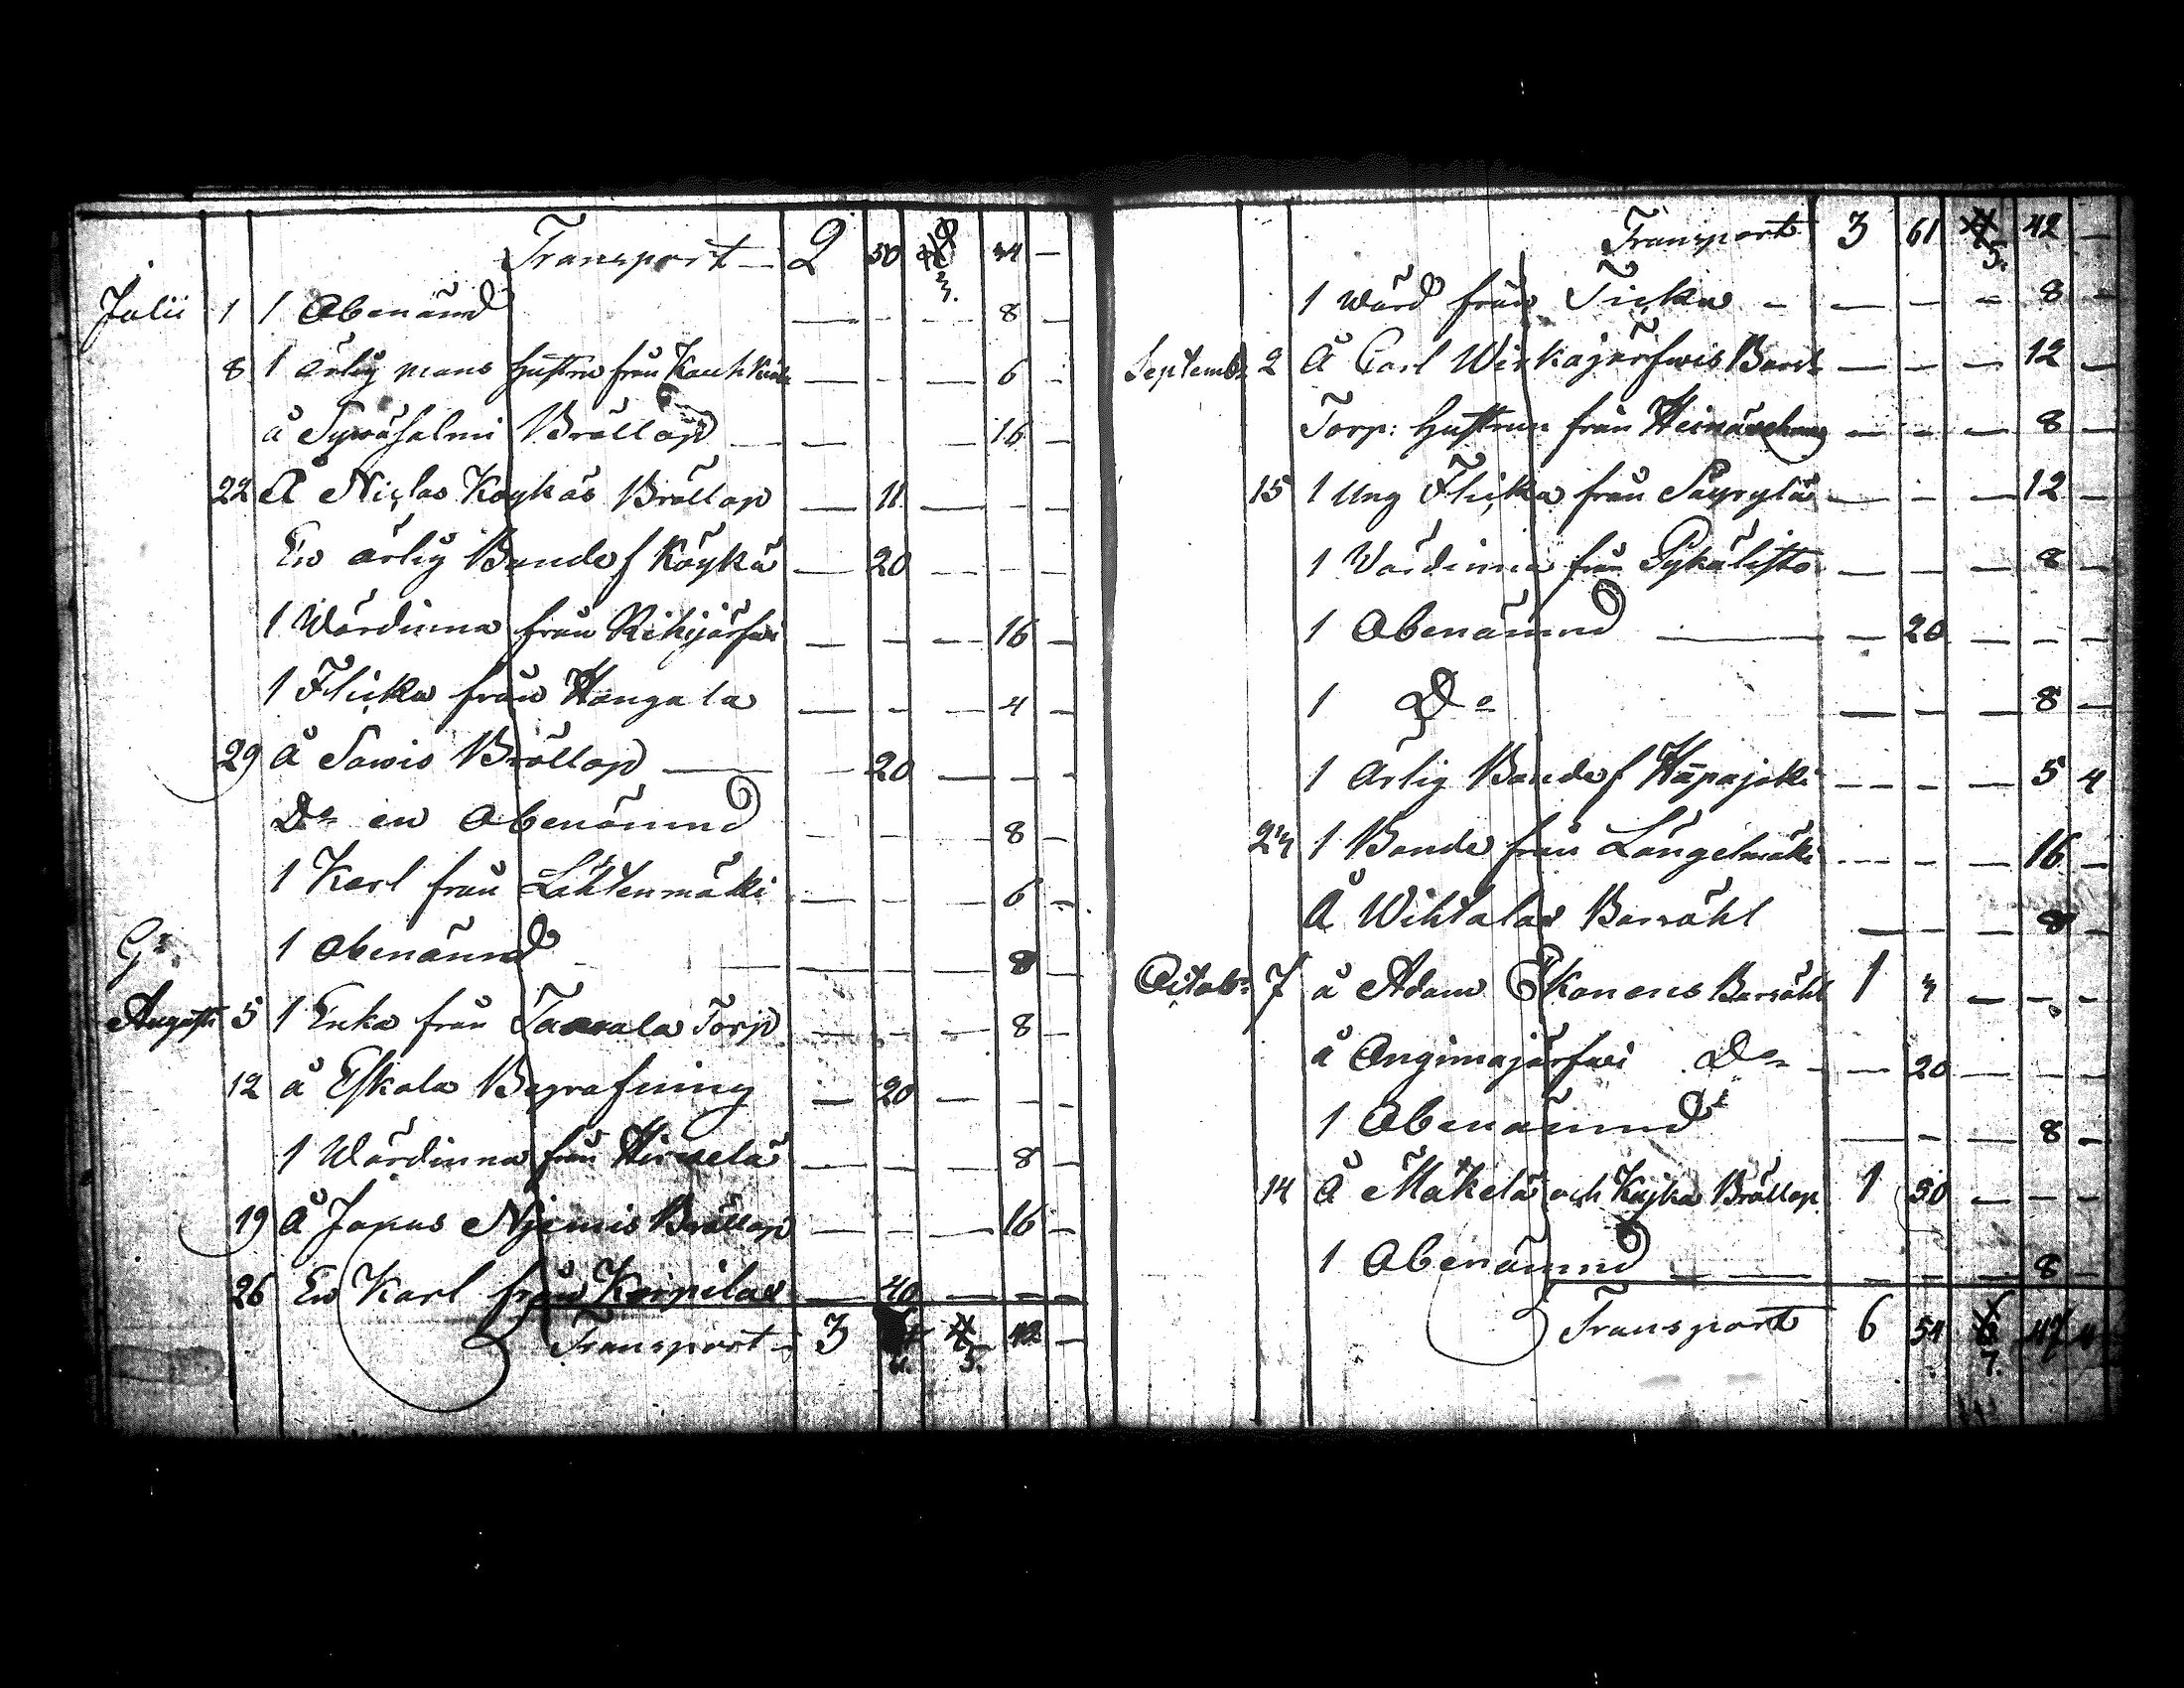 Transport — 2 50 3. 34 —
Julii 1 1 Obenämd — — — 8 —
8 1 ärlig mans Hustru från — — — 6 —
å Sywäsalmi Bröllop — — — 16 —
22 Å Niclas Köykäs Bröllop — 11 — — —
En ärlig Bonde f Köykä — 20 — — —
1 Wärdinna från Rihijärfwi — — — 16 —
1 Flicka från Hangala — — — 4 —
29 å Sawis Bröllop — — 20 — — —
Do en Obenämnd — — — 8 —
1 Karl från Lihtenmäki — — — 6 —
1 Obenämnd — — — 8 —
Augusti 5 1 Enka från Torp — — — 8 —
12 å Eskola Begrafning — 20 — — —
1 Wärdinna från Hirwelä — — — 8 —
19 Å Jonas Njemis Bröllop — — — 16 —
26 En Karl från Korpilax — 40 — — —
Transport — 3 5. 42 —
Transport 3 61 5. 42 —
1 Wärd från Ticka — — — — 8 —
Septembr 2 Å Carl Wirkajärfwis — — — 12 —
Torp: Hustrun från — — — 8 —
15 1 Ung Flicka från Säyrylä — — — 12 —
1 Wärdinna från Pykälistö — — — 8 —
1 Obenämnd — — 20 — — —
1 Do — — — 8 —
1 Ärlig Bonde f Hapajoki — — — 5 4
23 1 Bonde från Längelmäki — — — 16 —
Å Wihtalax Barsöhl — — — 8 —
Octobr 7 å Adam Barsöhl 1 3 — — —
å Onginajärfwi Do — — 20 — — —
1 Obenämnd — — — 8 —
14 Å Mäkelä och Kujka Bröllop 1 50 — — —
1 Obenämnd — — — — — 8 —
Transport 6 54 7. 47 4